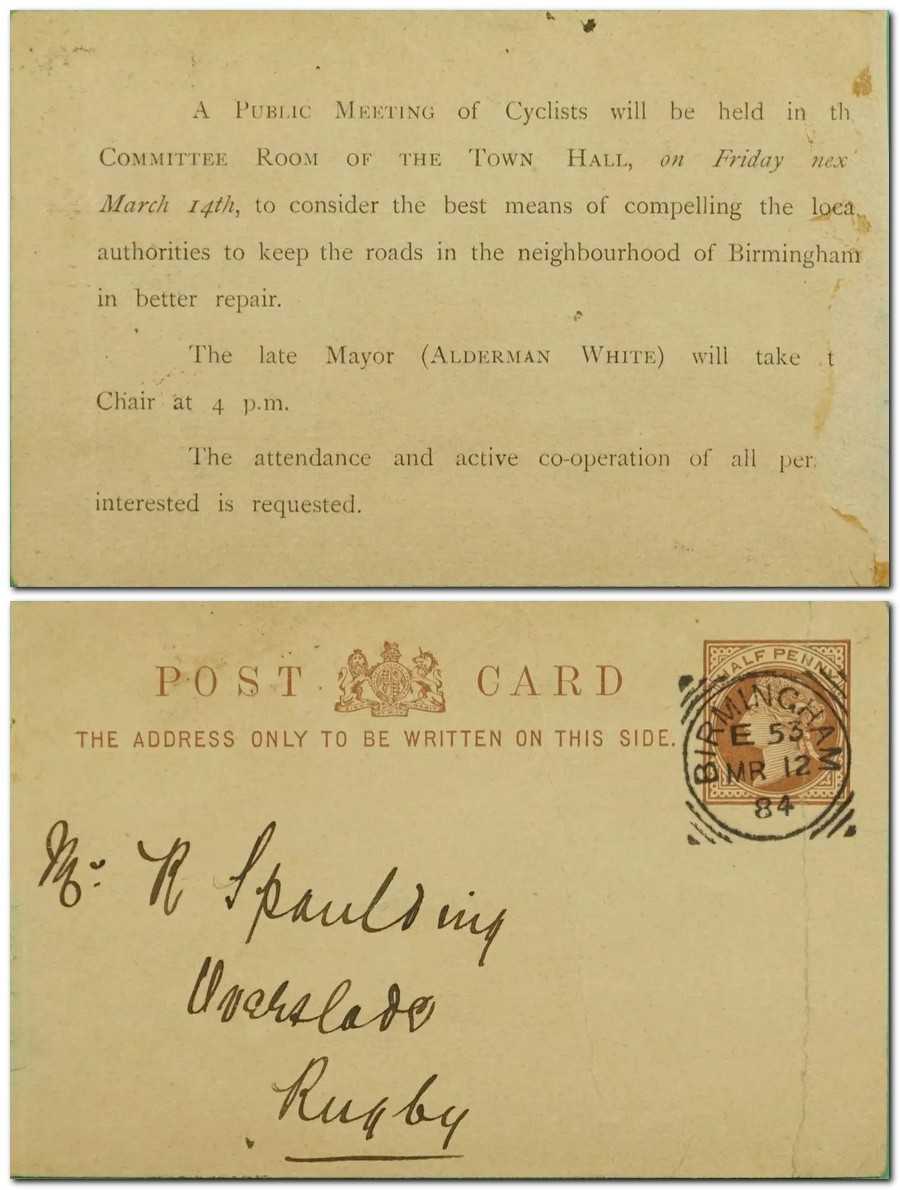 A PUBLIC MEETING of Cyclists will be held in th
COMMITTEE ROOM OF THE TOWN HALL, on Friday nex
March 14th, to consider the best means of compelling the loca
authorities to keep the roads in the neighbourhood of Birmingham
in better repair.
The late Mayor (ALDERMAN WHITE) will take t
Chair at 4 p.m.
The attendance and active co-operation of all per
interested is requested.
POST CARD
THE ADDRESS ONLY TO BE WRITTEN ON THIS SIDE.
HALF PENNY
BIRMINGHAM
E 53
MR 12
84
Mr. R Spaulding
Overslade
Rugby